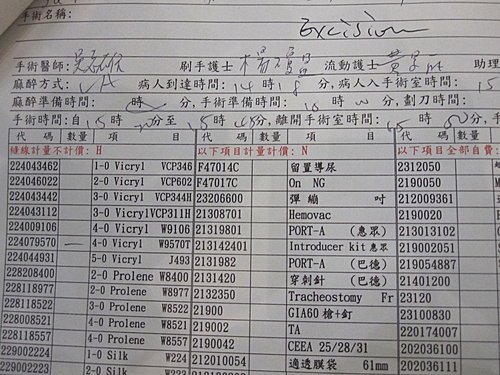 手術名稱:
Excision
手術醫師: 刷手護士 楊 流動護士 黃 助理
麻醉方式: LA 病人到達時間: 14時 分, 病人入手術室時間: 15
麻醉準備時間: 時 分, 手術準備時間: 時 分, 劃刀時間:
手術時間: 自15時 分至15時45分, 離開手術室時間: 15時50分,
代 碼 數量 項 目 代 碼 數量 項 目 代 碼
縫線計量不計價: H 以下項目計量計價: N 以下項目全部自費:
224043462 1-0 Vicryl VCP346 F47014C 留置導尿 2312050
224046022 2-0 Vicryl VCP602 F47017C On NG 2190050
224043442 3-0 Vicryl VCP344H 23206600 彈繃 吋 212009361
224043112 3-0 VicrylVCP311H 21308701 Hemovac 2190020
224009106 4-0 Vicryl W9106 21319801 PORT-A (惠眾) 213013102
224079570 一 4-0 Vicryl W9570T 213142401 Introducer kit惠眾 219002051
224044931 5-0 Vicryl J493 2131982 PORT-A (巴德) 219054887
228208400 2-0 Prolene W8400 2131420 穿刺針 (巴德) 21401200
228118977 2-0 Prolene W8977 2132350 Tracheostomy Fr 23120
228118522 3-0 Prolene W8522 21900 GIA60 槍+釘 23100830
228008521 4-0 Prolene W8521 219002 TA 220174007
228118557 4-0 Prolene W8557 2190042 CEEA 25/28/31 202036100
229002224 1-0 Silk W224 212010054 適透膜袋 61mm 202036111
229002223 2-0 Silk W223